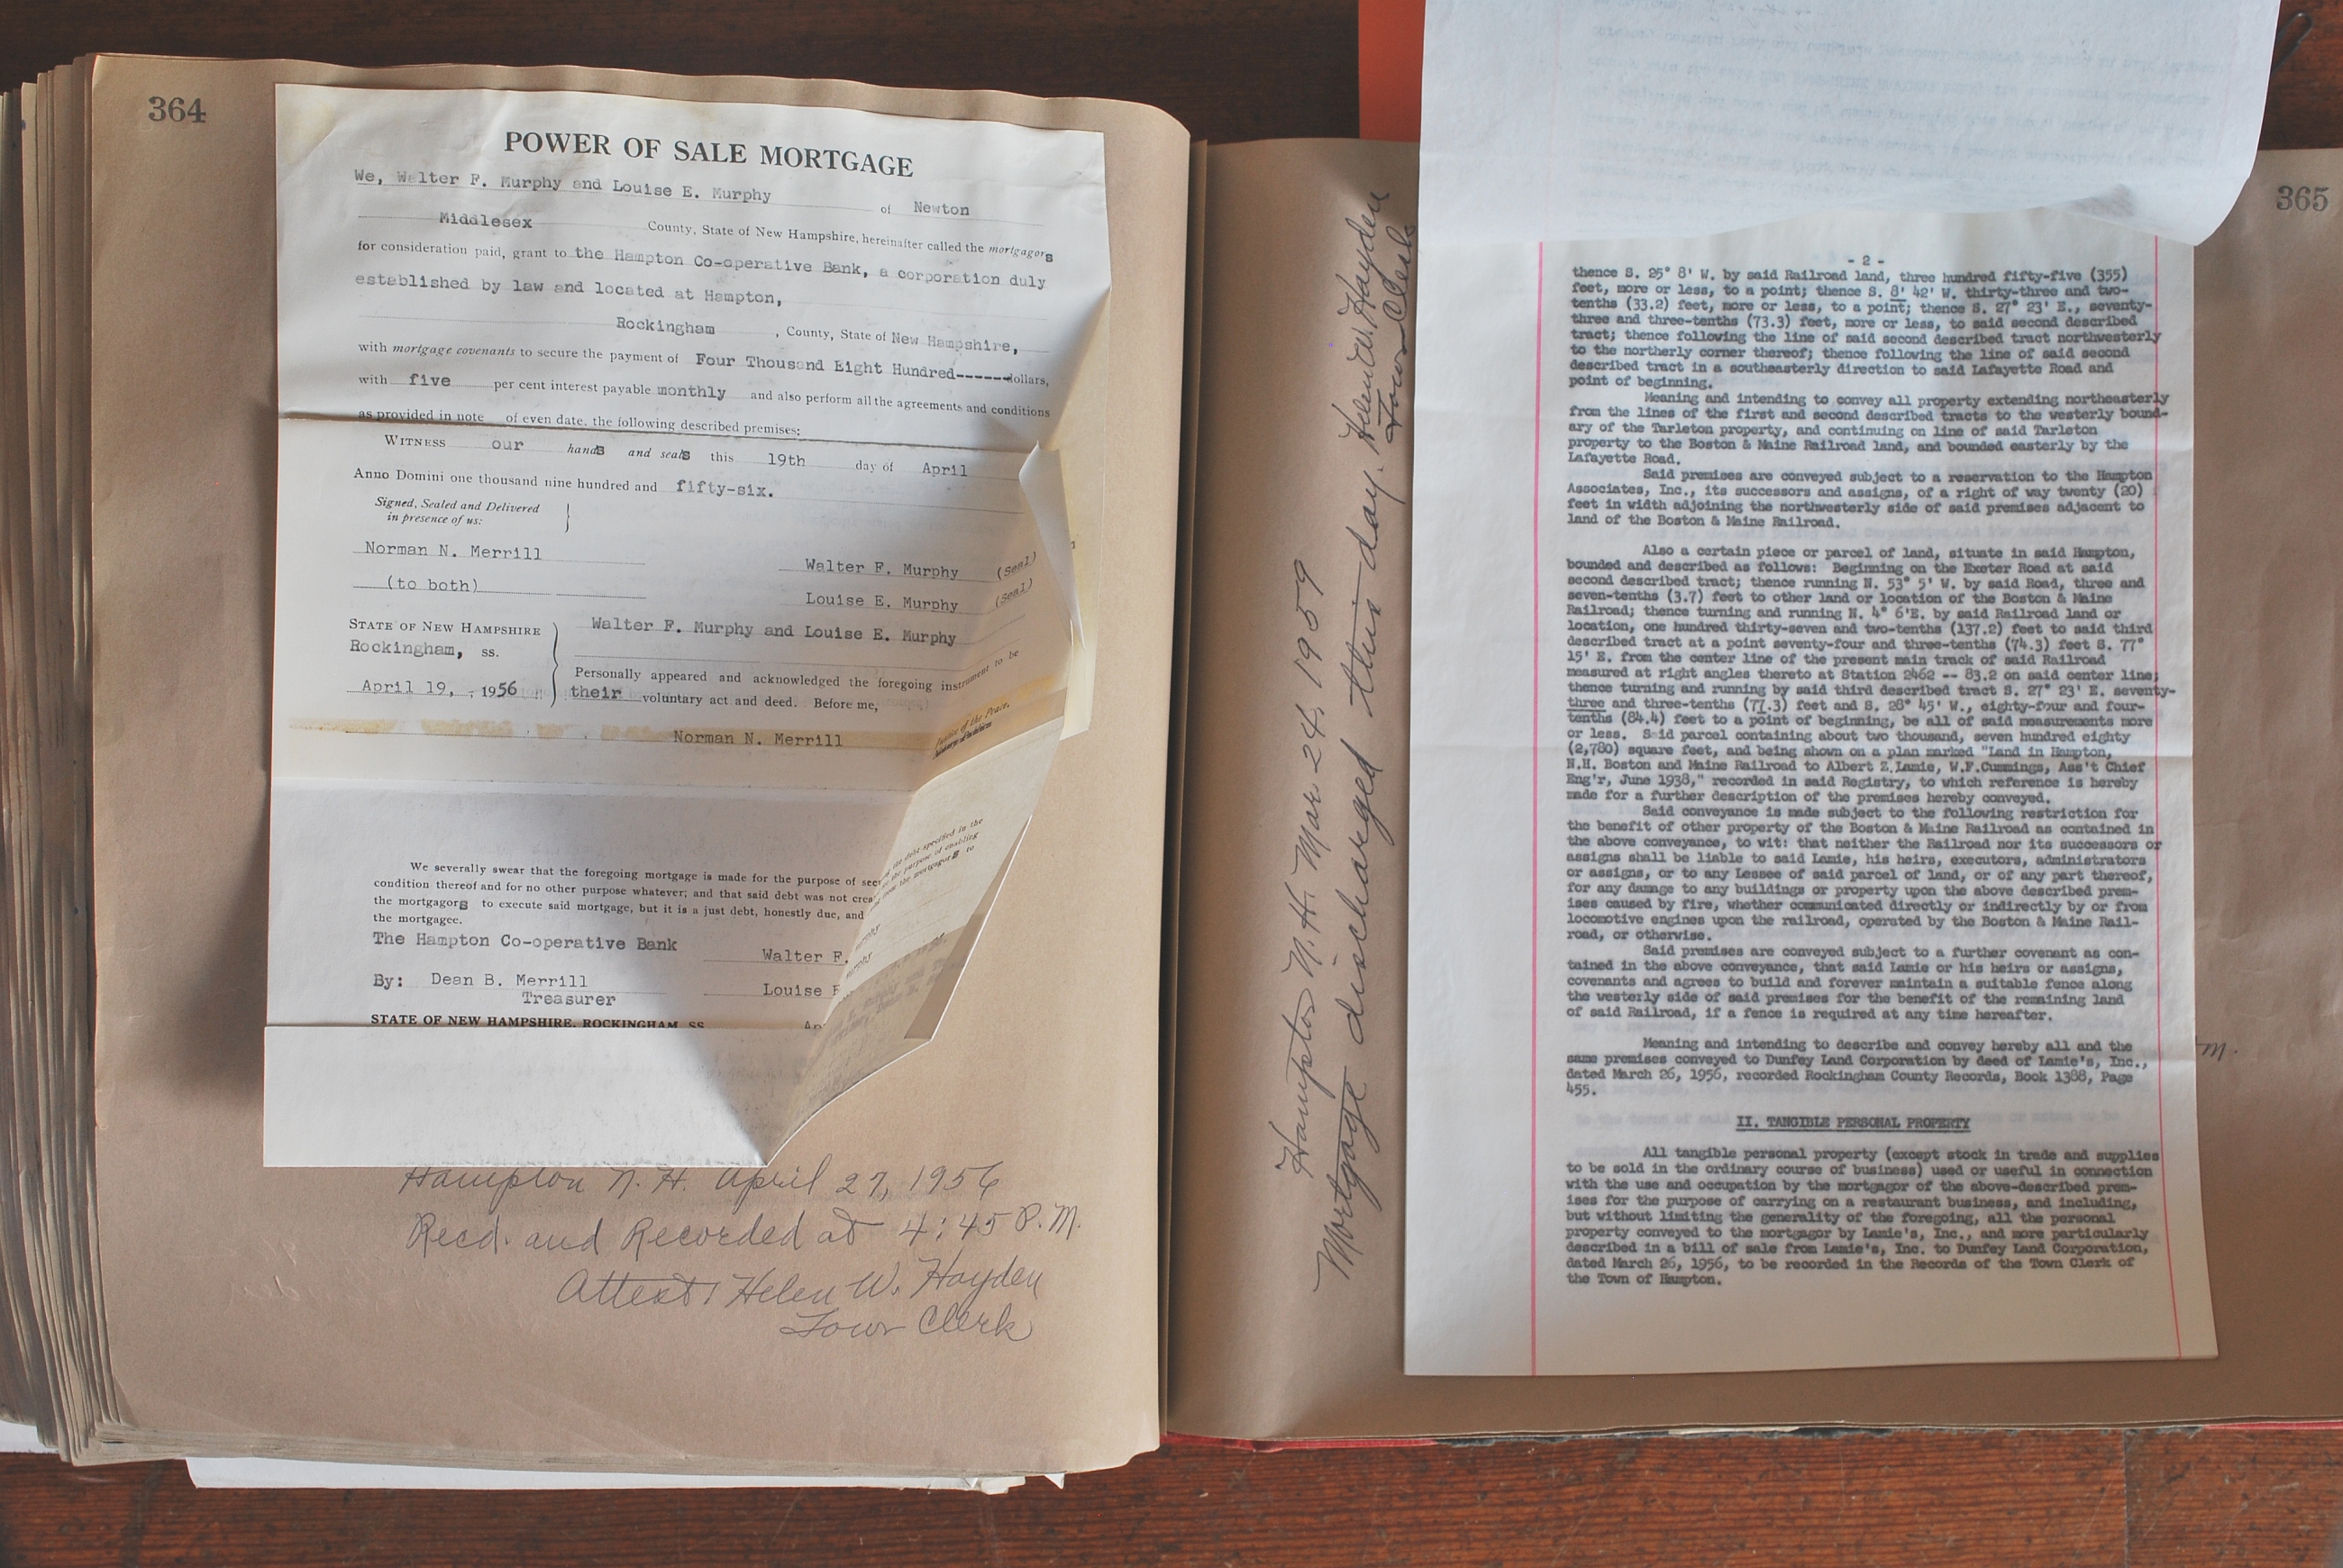 364
POWER OF SALE MORTGAGE
We, Walter F. Murphy and Louise E. Murphy of Newton
Middlesex County, State of New Hampshire, hereinafter called the mortgagors
for consideration paid, grant to the Hampton Co-operative Bank, a corporation duly
established by law and located at Hampton,
Rockingham , County, State of New Hampshire,
with mortgage covenants to secure the payment of Four Thousand Eight Hundred------dollars,
with five per cent interest payable monthly and also perform all the agreements and conditions
as provided in note of even date, the following described premises:
WITNESS our hands and seals this 19th day of April
Anno Domini one thousand nine hundred and fifty-six.
Signed, Sealed and Delivered
in presence of us:
Norman N. Merrill
Walter F. Murphy (Seal)
(to both)
Louise E. Murphy (Seal)
STATE OF NEW HAMPSHIRE
Rockingham, ss.
April 19, , 1956
Walter F. Murphy and Louise E. Murphy
Personally appeared and acknowledged the foregoing instrument to be
their voluntary act and deed. Before me,
Norman N. Merrill
Justice of the Peace.
the debt specified in the
the purpose of enabling
the mortgagors to
We severally swear that the foregoing mortgage is made for the purpose of
condition thereof and for no other purpose whatever; and that said debt was not
the mortgagors to execute said mortgage, but it is a just debt, honestly due, and
the mortgagee.
The Hampton Co-operative Bank
Walter F.
By: Dean B. Merrill
Louise
Treasurer
STATE OF NEW HAMPSHIRE, ROCKINGHAM, SS.
Hampton N. H. April 27, 1956
Recd. and Recorded at 4:45 P.M.
Attest: Helen W. Hayden
Town Clerk
Hampton N. H. Mar 24, 1959
Mortgage discharged this day. Helen W. Hayden
Town Clerk
365
- 2 -
thence S. 25° 8' W. by said Railroad land, three hundred fifty-five (355)
feet, more or less, to a point; thence S. 8' 42' W. thirty-three and two-
tenths (33.2) feet, more or less, to a point; thence S. 27° 23' E., seventy-
three and three-tenths (73.3) feet, more or less, to said second described
tract; thence following the line of said second described tract northwesterly
to the northerly corner thereof; thence following the line of said second
described tract in a southeasterly direction to said Lafayette Road and
point of beginning.
Meaning and intending to convey all property extending northeasterly
from the lines of the first and second described tracts to the westerly bound-
ary of the Tarleton property, and continuing on line of said Tarleton
property to the Boston & Maine Railroad land, and bounded easterly by the
Lafayette Road.
Said premises are conveyed subject to a reservation to the Hampton
Associates, Inc., its successors and assigns, of a right of way twenty (20)
feet in width adjoining the northwesterly side of said premises adjacent to
land of the Boston & Maine Railroad.
Also a certain piece or parcel of land, situate in said Hampton,
bounded and described as follows: Beginning on the Exeter Road at said
second described tract; thence running N. 53° 5' W. by said Road, three and
seven-tenths (3.7) feet to other land or location of the Boston & Maine
Railroad; thence turning and running N. 4° 6'E. by said Railroad land or
location, one hundred thirty-seven and two-tenths (137.2) feet to said third
described tract at a point seventy-four and three-tenths (74.3) feet S. 77°
15' E. from the center line of the present main track of said Railroad
measured at right angles thereto at Station 2462 -- 83.2 on said center line;
thence turning and running by said third described tract S. 27° 23' E. seventy-
three and three-tenths (77.3) feet and S. 28° 45' W., eighty-four and four-
tenths (84.4) feet to a point of beginning, be all of said measurements more
or less. Said parcel containing about two thousand, seven hundred eighty
(2,780) square feet, and being shown on a plan marked "Land in Hampton,
N.H. Boston and Maine Railroad to Albert Z.Lamie, W.F.Cummings, Ass't Chief
Eng'r, June 1938," recorded in said Registry, to which reference is hereby
made for a further description of the premises hereby conveyed.
Said conveyance is made subject to the following restriction for
the benefit of other property of the Boston & Maine Railroad as contained in
the above conveyance, to wit: that neither the Railroad nor its successors or
assigns shall be liable to said Lamie, his heirs, executors, administrators
or assigns, or to any Lessee of said parcel of land, or of any part thereof,
for any damage to any buildings or property upon the above described prem-
ises caused by fire, whether communicated directly or indirectly by or from
locomotive engines upon the railroad, operated by the Boston & Maine Rail-
road, or otherwise.
Said premises are conveyed subject to a further covenant as con-
tained in the above conveyance, that said Lamie or his heirs or assigns,
covenants and agrees to build and forever maintain a suitable fence along
the westerly side of said premises for the benefit of the remaining land
of said Railroad, if a fence is required at any time hereafter.
Meaning and intending to describe and convey hereby all and the
same premises conveyed to Dunfey Land Corporation by deed of Lamie's, Inc.,
dated March 26, 1956, recorded Rockingham County Records, Book 1388, Page
455.
II. TANGIBLE PERSONAL PROPERTY
All tangible personal property (except stock in trade and supplies
to be sold in the ordinary course of business) used or useful in connection
with the use and occupation by the mortgagor of the above-described prem-
ises for the purpose of carrying on a restaurant business, and including,
but without limiting the generality of the foregoing, all the personal
property conveyed to the mortgagor by Lamie's, Inc., and more particularly
described in a bill of sale from Lamie's, Inc. to Dunfey Land Corporation,
dated March 26, 1956, to be recorded in the Records of the Town Clerk of
the Town of Hampton.